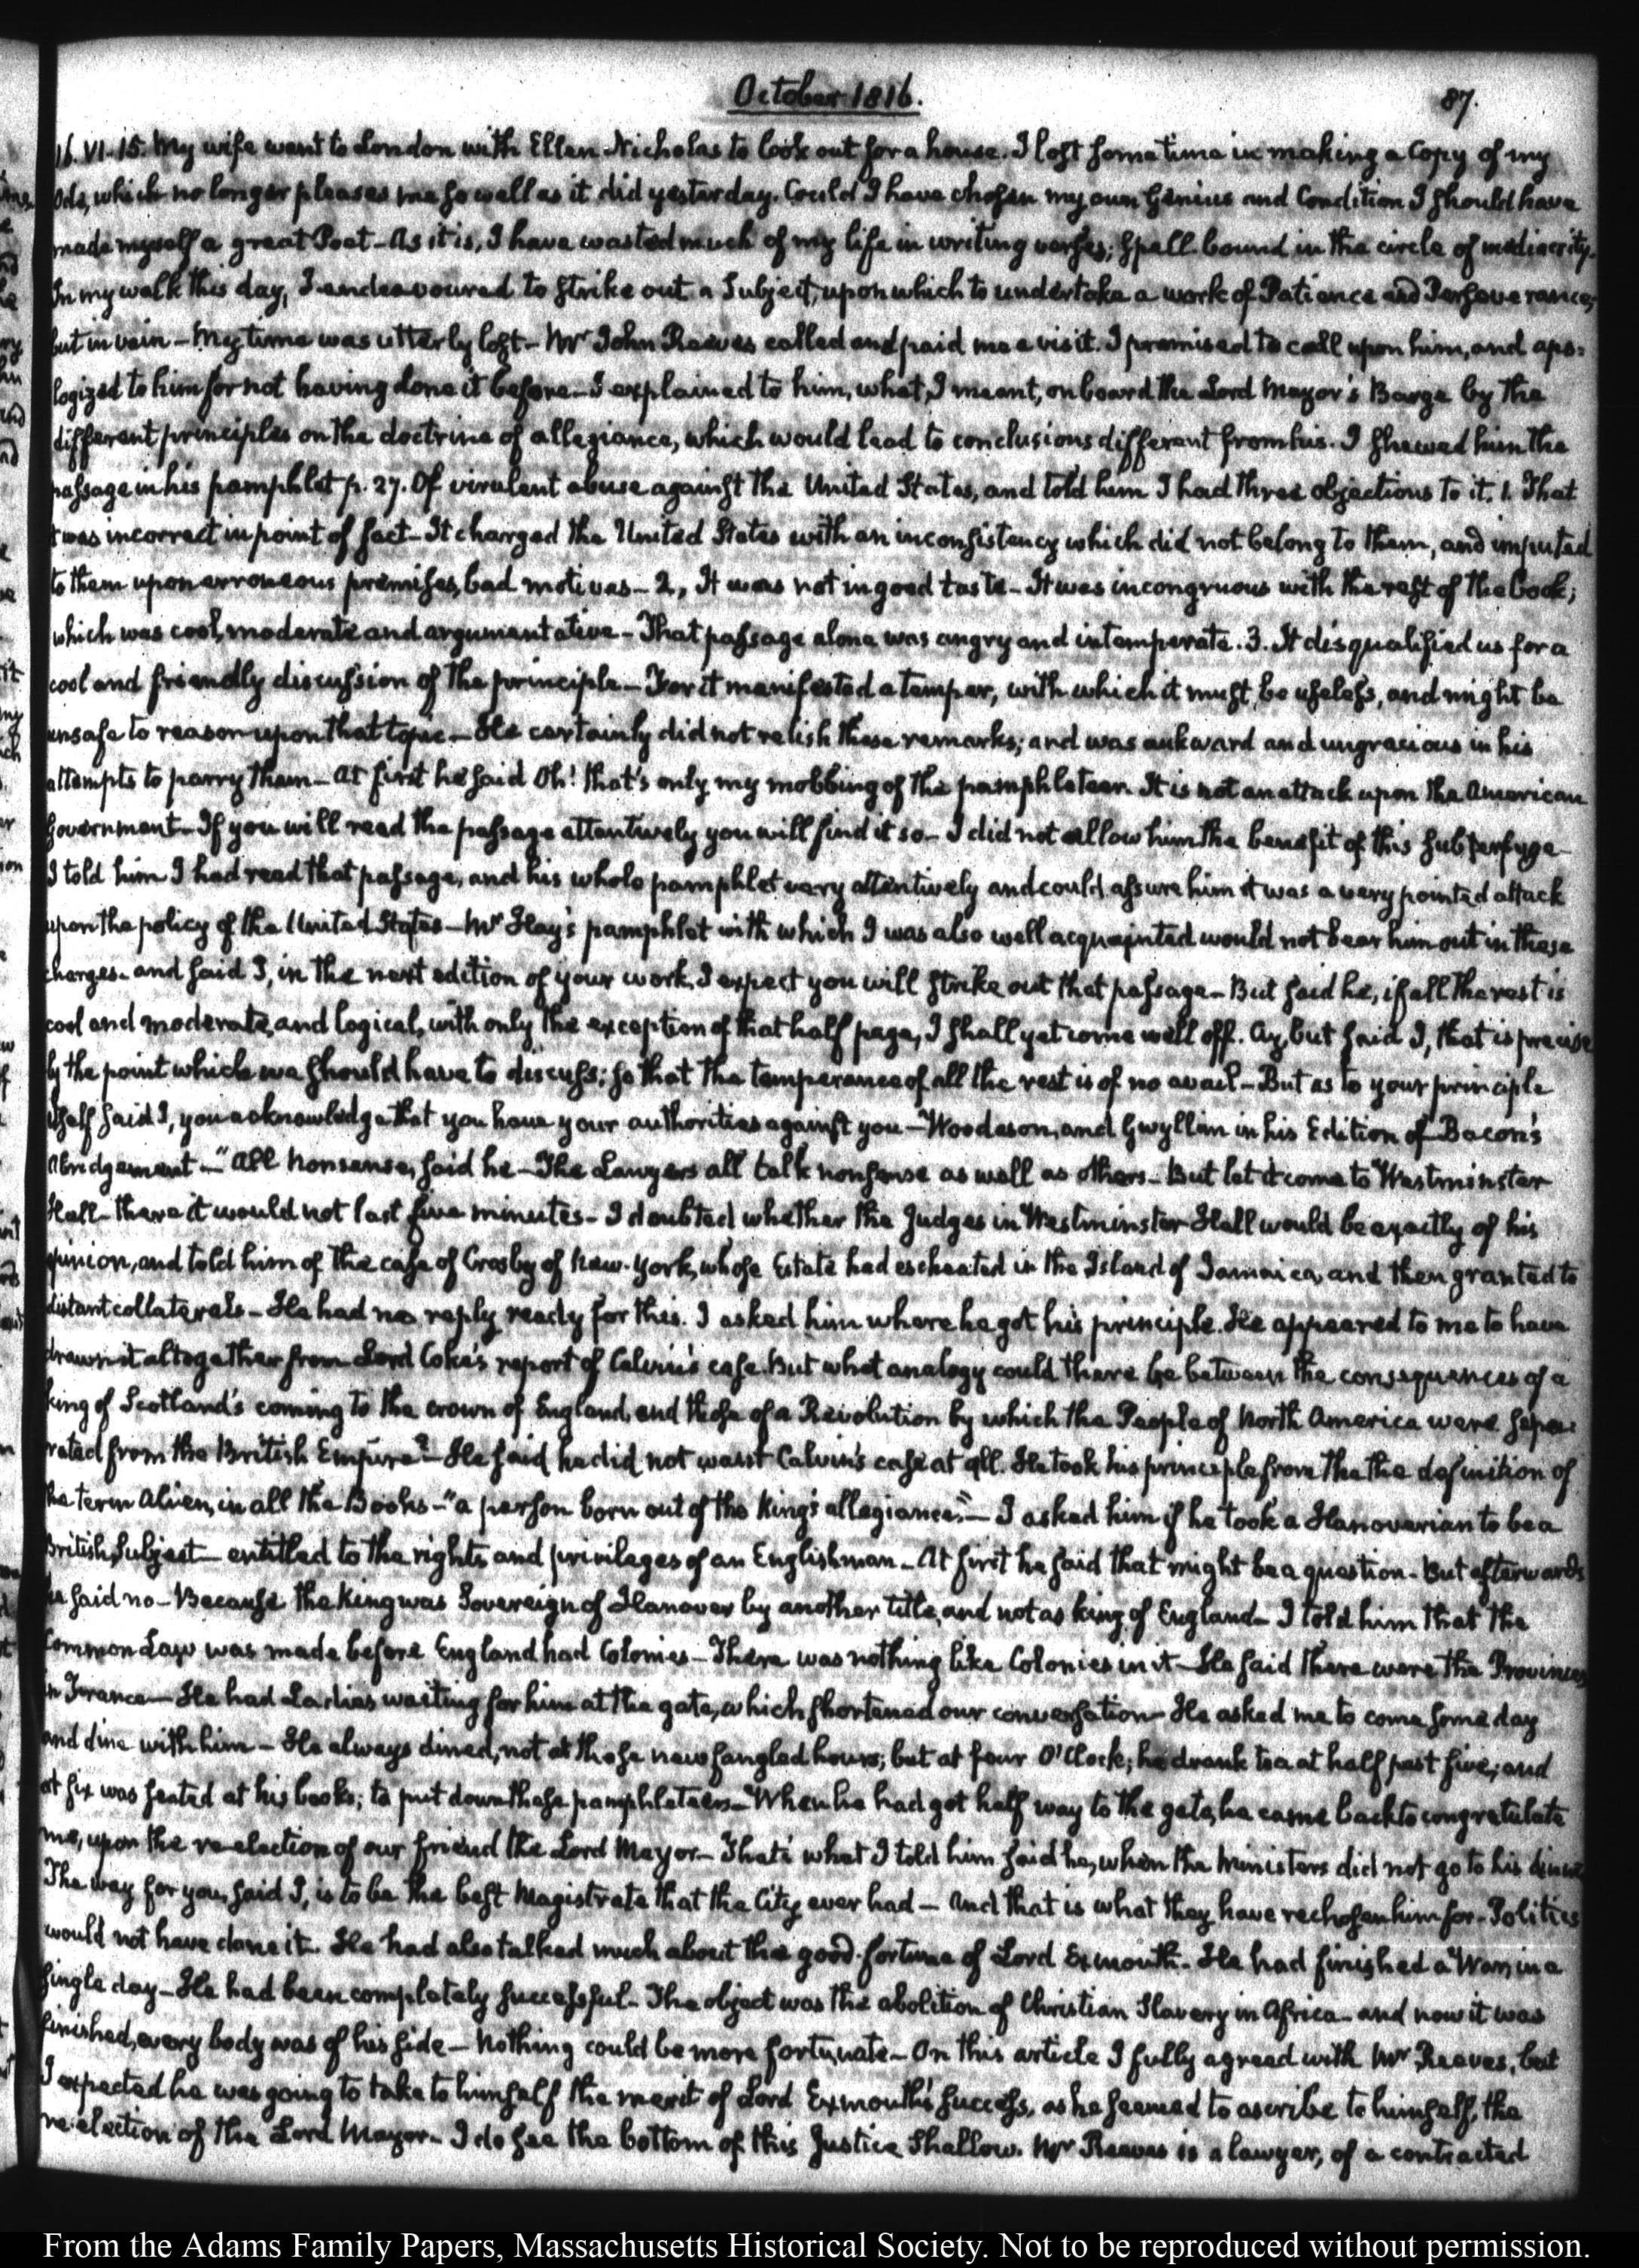 October 1816.
87.
16. VI. 15. My wife went to London with Ellen Nicholas to look out for a house. I lost some time in making a Copy of my
Ode, which no longer pleases me so well as it did yesterday. Could I have chosen my own Genius and Condition I should have
made myself a great Poet - As it is, I have wasted much of my life in writing verses; Spell-bound in the circle of mediocrity.
In my walk this day, I endeavoured to strike out a Subject, upon which to undertake a work of Patience and Perseverance;
but in vain - My time was utterly lost - Mr John Reeves called and paid me a visit. I promised to call upon him, and apo:
logized to him for not having done it before - I explained to him, what I meant, on board the Lord Mayor's Barge by the
different principles on the doctrine of allegiance, which would lead to conclusions different from his. I shewed him the
passage in his pamphlet p. 27. Of virulent abuse against the United States, and told him I had three objections to it. 1. That
t was incorrect in point of fact - It charged the United States with an inconsistency which did not belong to them, and imputed
to them upon erroneous premises, bad motives - 2, It was not in good taste - It was incongruous with the rest of the book;
which was cool, moderate and argumentative - That passage alone was angry and intemperate. 3. It disqualified us for a
cool and friendly discussion of the principle - For it manifested a temper, with which it must be useless, and might be
unsafe to reason upon that topic - He certainly did not relish these remarks; and was aukward and ungracious in his
attempts to parry them - At first he said Oh! that's only my mobbing of the pamphleteer. It is not an attack upon the American
Government - If you will read the passage attentively you will find it so - I did not allow him the benefit of this subterfuge -
I told him I had read that passage, and his whole pamphlet very attentively and could assure him it was a very pointed attack
upon the policy of the United States - Mr Hay's pamphlet with which I was also well acquainted would not bear him out in these
charges - and said I, in the next edition of your work I expect you will strike out that passage - But said he, if all the rest is
cool and moderate, and logical, with only the exception of that half page, I shall yet come well off. Ay, but said I, that is precise
ly the point which we should have to discuss: so that the temperance of all the rest is of no avail - But as to your principle
itself said I, you acknowledge that you have your authorities against you - Woodeson, and Gwyllim in his Edition of Bacon's
Abridgement - "All nonsense, said he - The Lawyers all talk nonsense as well as others - But let it come to Westminster
Hall - there it would not last five minutes - I doubted whether the Judges in Westminster Hall would be exactly of his
opinion, and told him of the case of Crosby of New-York, whose Estate had escheated in the Island of Jamaica, and then granted to
distant collaterals - He had no reply ready for this. I asked him where he got his principle. He appeared to me to have
drawn it altogether from Lord Coke's report of Calvin's case. But what analogy could there be between the consequences of a
king of Scotland's coming to the crown of England, and those of a Revolution by which the People of North America were sepa:
rated from the British Empire? - He said he did not want Calvin's case at all. He took his principle from the the definition of
the term Alien, in all the Books - "a person born out of the King's allegiance." - I asked him if he took a Hanoverian to be a
British Subject - entitled to the rights and privileges of an Englishman - At first he said that might be a question - But afterwards
he said no - Because the King was Sovereign of Hanover by another title, and not as king of England - I told him that the
Common Law was made before England had Colonies - There was nothing like Colonies in it - He said there were the Provinces
in France - He had Ladies waiting for him at the gate, which shortened our conversation - He asked me to come some day
and dine with him - He always dined, not at those new fangled hours; but at four O'Clock; he drank tea at half past five; and
at six was seated at his books; to put down these pamphleteers - When he had got half way to the gate, he came back to congratulate
me, upon the re-election of our friend the Lord Mayor - That's what I told him said he, when the Ministers did not go to his dinner
The way for you, said I, is to be the best Magistrate that the City ever had - And that is what they have rechosen him for - Politics
would not have done it. He had also talked much about the good fortune of Lord Exmouth. He had finished a War, in a
single day - He had been completely successful - The object was the abolition of Christian Slavery in Africa - and now it was
finished, every body was of his side - Nothing could be more fortunate - On this article I fully agreed with Mr Reeves, but
I expected he was going to take to himself the merit of Lord Exmouth's success, as he seemed to ascribe to himself, the
re-election of the Lord Mayor - I do see the bottom of this Justice Shallow. Mr Reeves is a lawyer, of a contracted
From the Adams Family Papers, Massachusetts Historical Society. Not to be reproduced without permission.